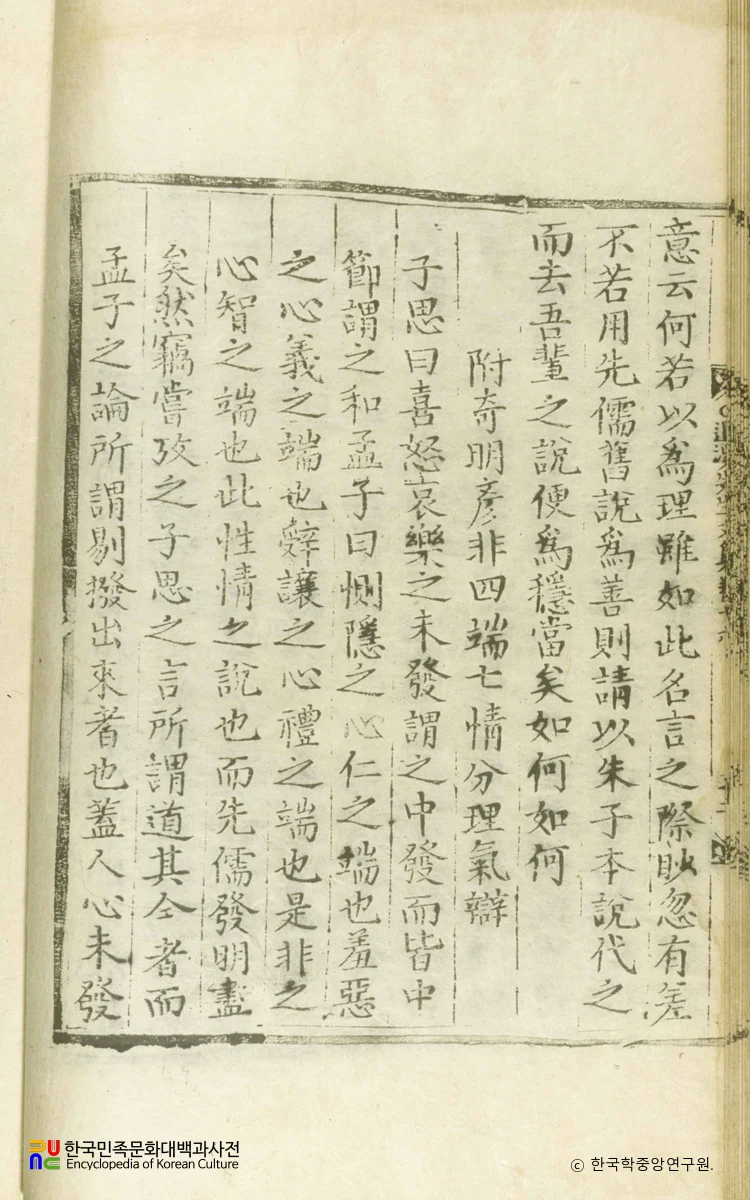 意云何若以爲理雖如此名言之際眇忽有差
不若用先儒舊說爲善則請以朱子本說代之
而去吾輩之說便爲穩當矣如何如何
附奇明彦非四端七情分理氣辯
子思曰喜怒哀樂之未發謂之中發而皆中
節謂之和孟子曰惻隱之心仁之端也羞惡
之心義之端也辭讓之心禮之端也是非之
心智之端也此性情之說也而先儒發明盡
矣然竊嘗攷之子思之言所謂道其全者而
孟子之論所謂剔撥出來者也蓋人心未發
한국민족문화대백과사전
Encyclopedia of Korean Culture
ⓒ 한국학중앙연구원.